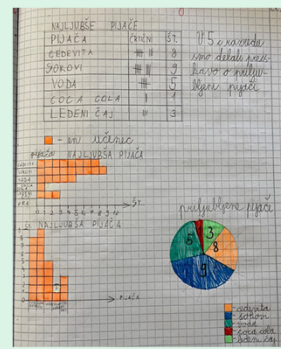 NAJLJUBŠE PIJAČE
PIJAČA ČRTIČNI ŠT.
CEDEVITA 8
SOKOVI 9
VODA 5
COCA COLA 1
LEDENI ČAJ 3
V 5. c razredu
smo delali
o priljub-
ljeni pijači
- en učenec
NAJLJUBŠA PIJAČA
ŠT.
NAJLJUBŠA PIJAČA
PIJAČA
priljubljene pijače
5 3 8 9
- cedevita
- sokovi
- voda
- coca cola
- ledeni čaj